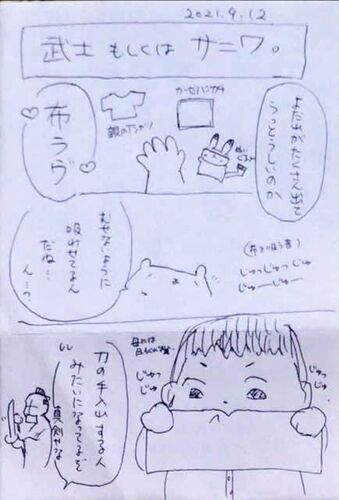 2021.9.12
武士もしくはサニワ。
よだれがたくさん出て
うっとうしいのか
ガーゼハンカチ
布ラヴ
むせないように
吸わせてるん
だね…
ん…？
(布を吸う音)
じゅっじゅっじゅ
じゅーじゅー
じゅっ
じゅ
じゅっ
じゅ
刀の手入れする人
みたいになってるぞ
真剣やな